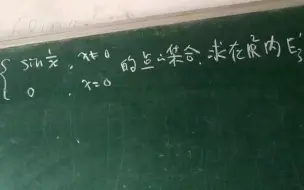 { sin 1/x , x≠0
0 , x=0 的点的集合, 求在R²内E₃'